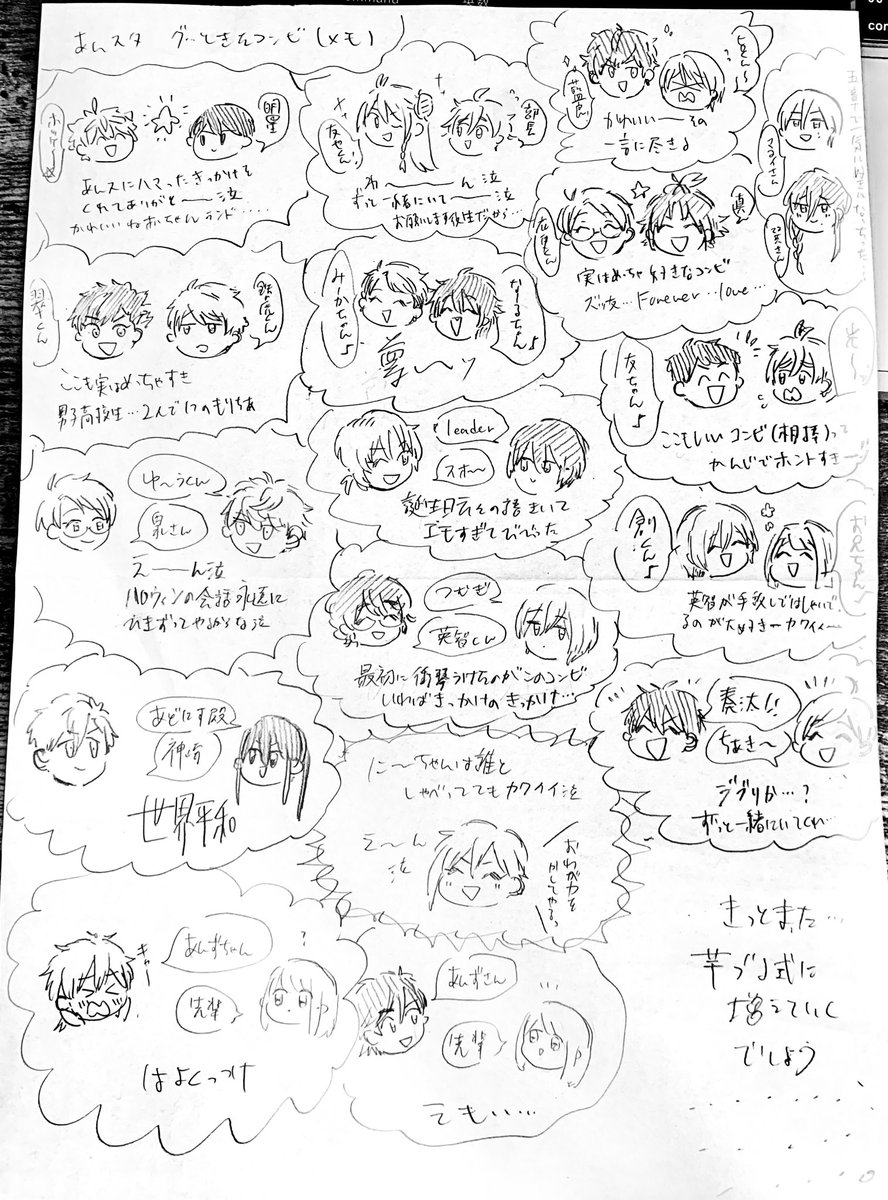 あんスタ グッときたコンビ(メモ)
ホッケ〜
明星
あんスにハマったきっかけを
くれてありがと〜泣
かわいいねおちゃんランド……
友也くん!
部長
わ〜〜ん泣
ずっと一緒にいて〜〜泣
お願いします後生だから…
藍良
かわいい〜その
一言に尽きる
マヨイさん
巽さん
真
実はめっちゃ好きなコンビ
ズッ友…Forever…love…
翠くん
鉄虎くん
ここも実はめっちゃすき
男子高校生…2人で1つのもりちあ
みかちゃん♪
なるちゃん♪
尊い〜ッ
友ちゃん♪
光〜ッ
ここもいいコンビ(相棒)って
かんじでホントすき…
leader
スオ〜
誕生日
エモすぎてびびった
ゆ〜うくん
泉さん
え〜〜ん泣
ハロウィンの会話永遠に
ひきずってやるからな泣
創くん♪
お兄ちゃん♪
英智が手放しではしゃいで
るのが大好きーカワイイ〜
つむぎ
英智くん
最初に衝撃うけたのがこのコンビ
いわばきっかけのきっかけ…
あどにす殿
神崎
世界平和
奏汰!!
ちあき〜
ジブリか…?
ずっと一緒にいてくれ…
に〜ちゃんは誰と
しゃべっててもカワイイ泣
え〜ん
泣
キャー
あんずちゃん
先輩
?
はよくっつけ
あんずさん
先輩
えもい…
きっとまた…
芋づる式に
増えていく
でしょう